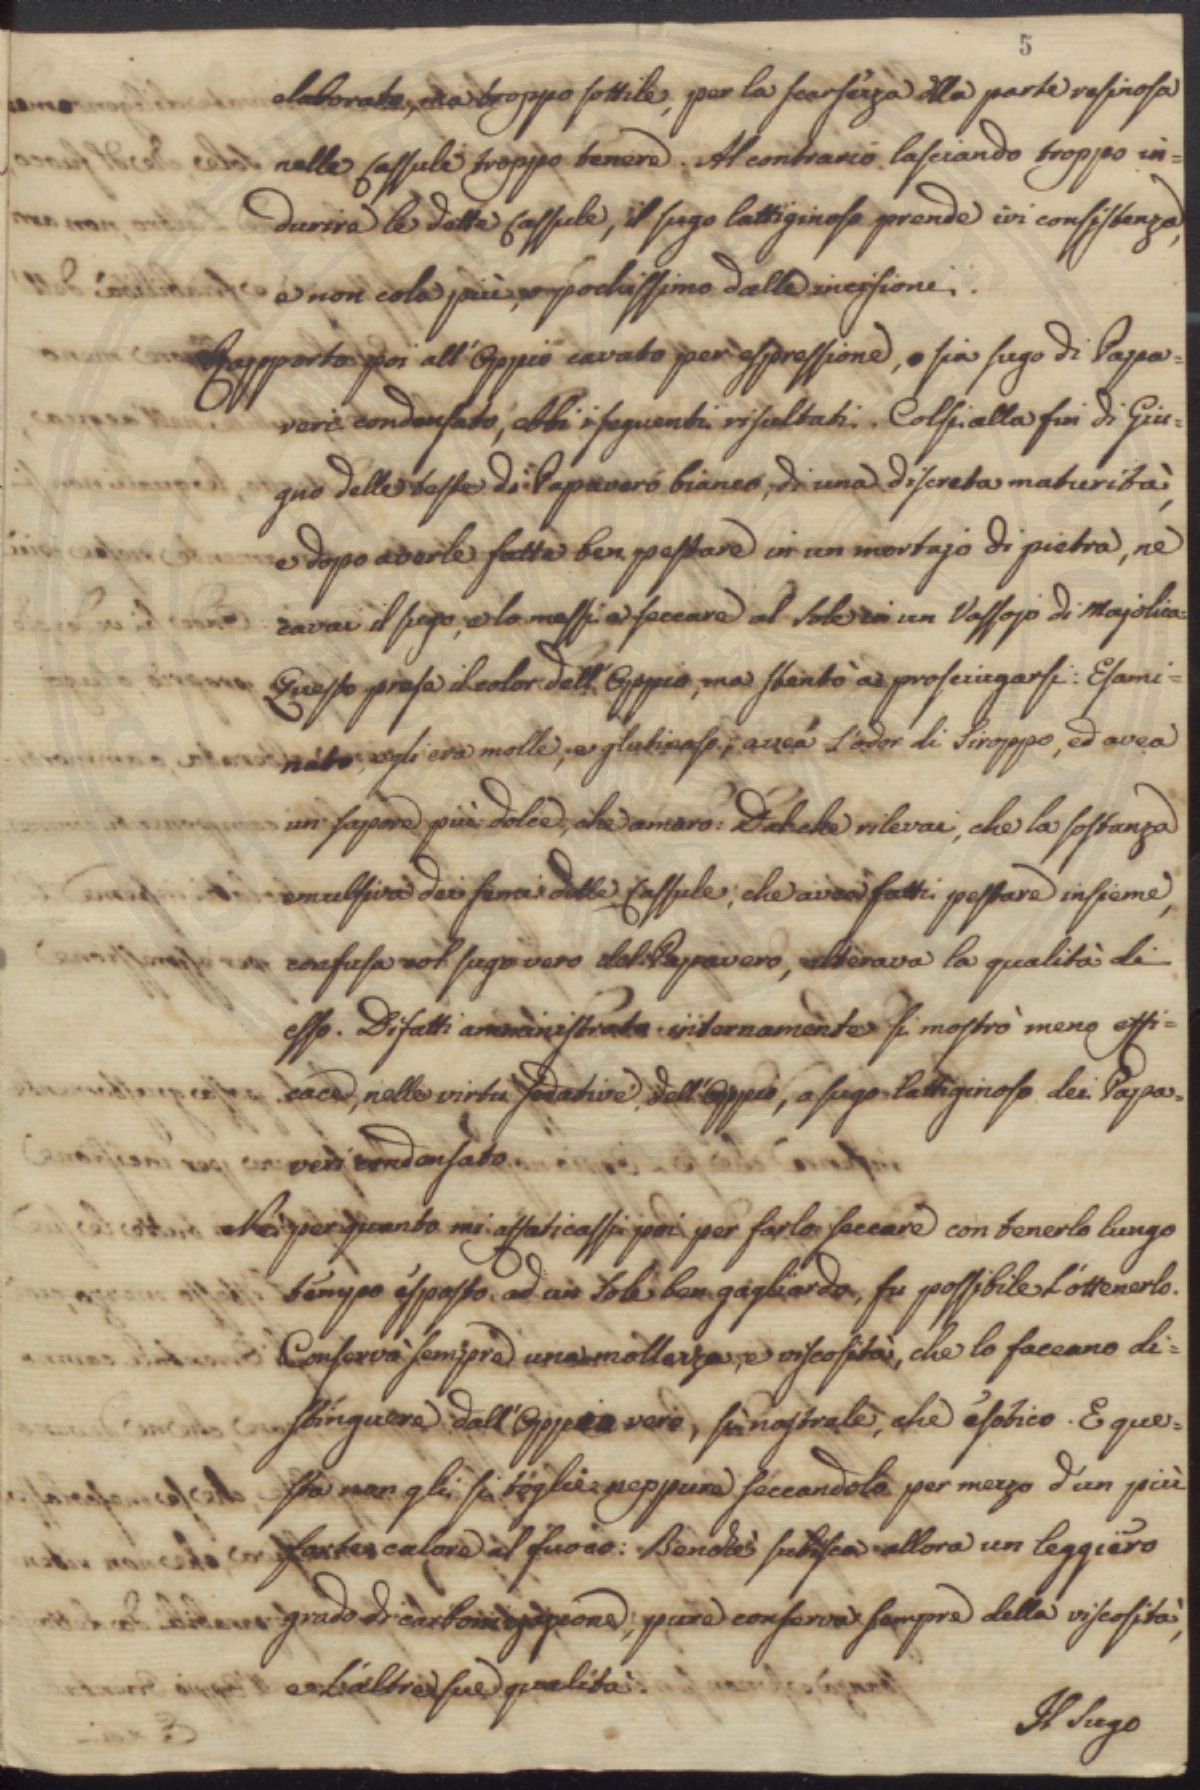 5
elaborato, ma troppo sottile, per la scarsezza della parte resinosa
nelle Cassule troppo tenere. Al contrario lasciando troppo in=
durire le dette Cassule, il sugo lattiginoso prende ivi consistenza,
e non cola più, o pochissimo dalle incisioni.
Rapporto poi all'Oppio cavato per espressione, o sia sugo di Papa=
veri condensato, ebbi i seguenti risultati. Colsi alla fin di Giu=
gno delle teste di Papavero bianco, di una discreta maturità,
e dopo averle fatte ben pestare in un mortajo di pietra, ne
cavai il sugo, e lo messi a seccare al Sole in un Vassojo di Majolica.
Questo prese il color dell'Oppio, ma stentò a prosciugarsi: Esami=
nato, egli era molle, e glutinoso; avea l'odor di Siroppo, ed avea
un sapore più dolce, che amaro: Dal che rilevai, che la sostanza
emulsiva dei semi delle Cassule, che avea fatti pestare insieme,
confusa col sugo vero del Papavero, alterava la qualità di
esso. Difatti amministrato internamente si mostrò meno effi=
cace, nelle virtù sedative dell'Oppio, a sugo lattiginoso dei Papa=
veri condensato.
Nè per quanto mi affaticassi poi per farlo seccare con tenerlo lungo
tempo esposto ad un Sole ben gagliardo, fu possibile l'ottenerlo.
Conservò sempre una mollezza, e viscosità, che lo faceano di=
stinguere dall'Oppio vero, sì nostrale, che esotico. E que=
sta non gli si toglie neppure seccandolo per mezzo d'un più
forte calore al fuoco: Benchè subisca allora un leggiero
grado di carbonizazione, pure conserva sempre della viscosità,
e l'altre sue qualità.
Il Sugo